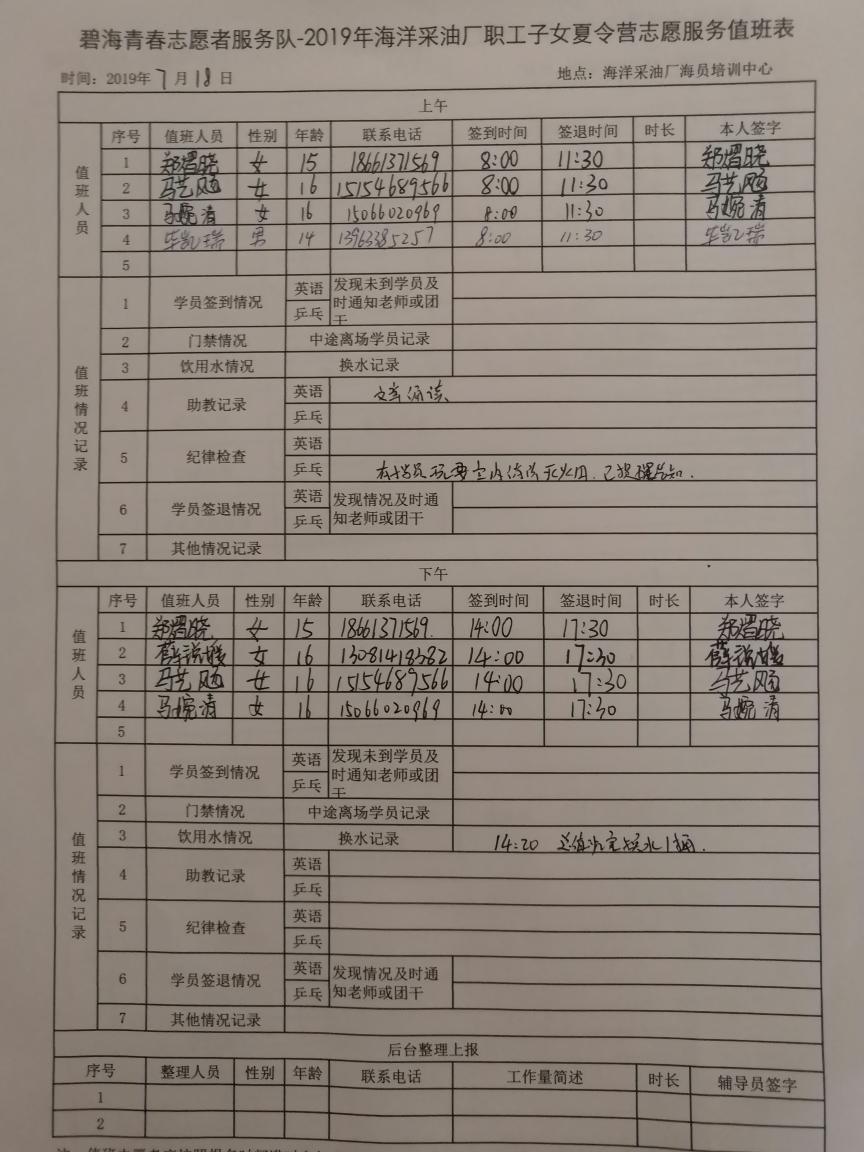 碧海青春志愿者服务队-2019年海洋采油厂职工子女夏令营志愿服务值班表
时间：2019年7月18日 地点：海洋采油厂海员培训中心
上午
值班人员
序号 值班人员 性别 年龄 联系电话 签到时间 签退时间 时长 本人签字
1 郑熠晓 女 15 18661371569 8:00 11:30 郑熠晓
2 马艺飏 女 16 15154689566 8:00 11:30 马艺飏
3 马婉清 女 16 15066020969 8:00 11:30 马婉清
4 毕凯瑞 男 14 13963385257 8:00 11:30 毕凯瑞
5
值班情况记录
1 学员签到情况 英语 乒乓 发现未到学员及时通知老师或团干
2 门禁情况 中途离场学员记录
3 饮用水情况 换水记录
4 助教记录 英语 文章诵读
乒乓
5 纪律检查 英语
乒乓 有学员玩耍室内 灭火 已提醒告知.
6 学员签退情况 英语 乒乓 发现情况及时通知老师或团干
7 其他情况记录
下午
值班人员
序号 值班人员 性别 年龄 联系电话 签到时间 签退时间 时长 本人签字
1 郑熠晓 女 15 18661371569. 14:00 17:30 郑熠晓
2 薛 女 16 13081418382 14:00 17:30 薛
3 马艺飏 女 16 15154689566 14:00 17:30 马艺飏
4 马婉清 女 16 15066020969 14:00 17:30 马婉清
5
值班情况记录
1 学员签到情况 英语 乒乓 发现未到学员及时通知老师或团干
2 门禁情况 中途离场学员记录
3 饮用水情况 换水记录 14:20 值班室换水1桶.
4 助教记录 英语
乒乓
5 纪律检查 英语
乒乓
6 学员签退情况 英语 乒乓 发现情况及时通知老师或团干
7 其他情况记录
后台整理上报
序号 整理人员 性别 年龄 联系电话 工作量简述 时长 辅导员签字
1
2